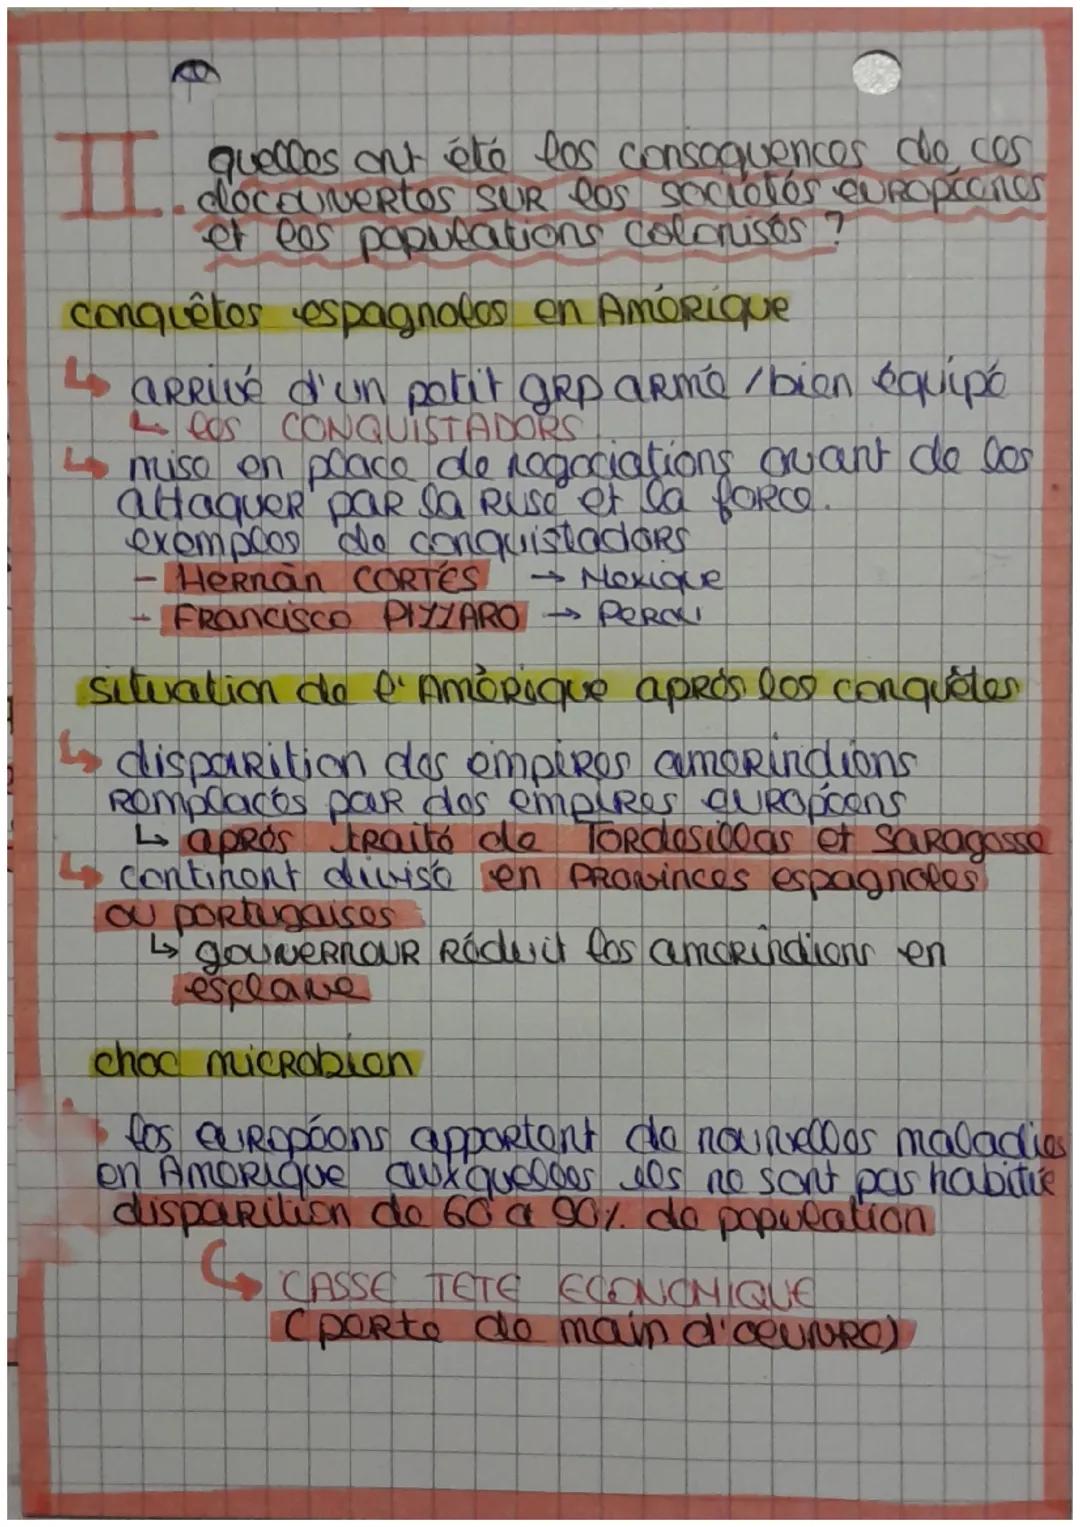 II. quelles ont été les conséquences de ces
découvertes sur les sociétés européenes
et les populations colonisés ?
conquêtes espagnoles en Amérique
↳ arrivé d'un petit grp armé / bien équipé
↳ les CONQUISTADORS
↳ mise en place de négociations avant de les
attaquer par la ruse et la force.
exemples de conquistadors
- Hernàn CORTÉS → Mexique
- Francisco PIZZARO → Perou
situation de l'Amérique après les conquêtes
↳ disparition des empires amérindiens
remplacés par des empires européens
↳ après traité de Tordesillas et Saragosse
↳ continent divisé en provinces espagnoles
ou portugaises
↳ gouverneur réduit les amérindiens en
esclave
choc microbien
les européens apportent de nouvelles maladies
en Amérique auxquelles ils ne sont pas habitué
disparition de 60 a 90% de population
↳ CASSE TETE ECONOMIQUE
(perte de main d'oeuvre)